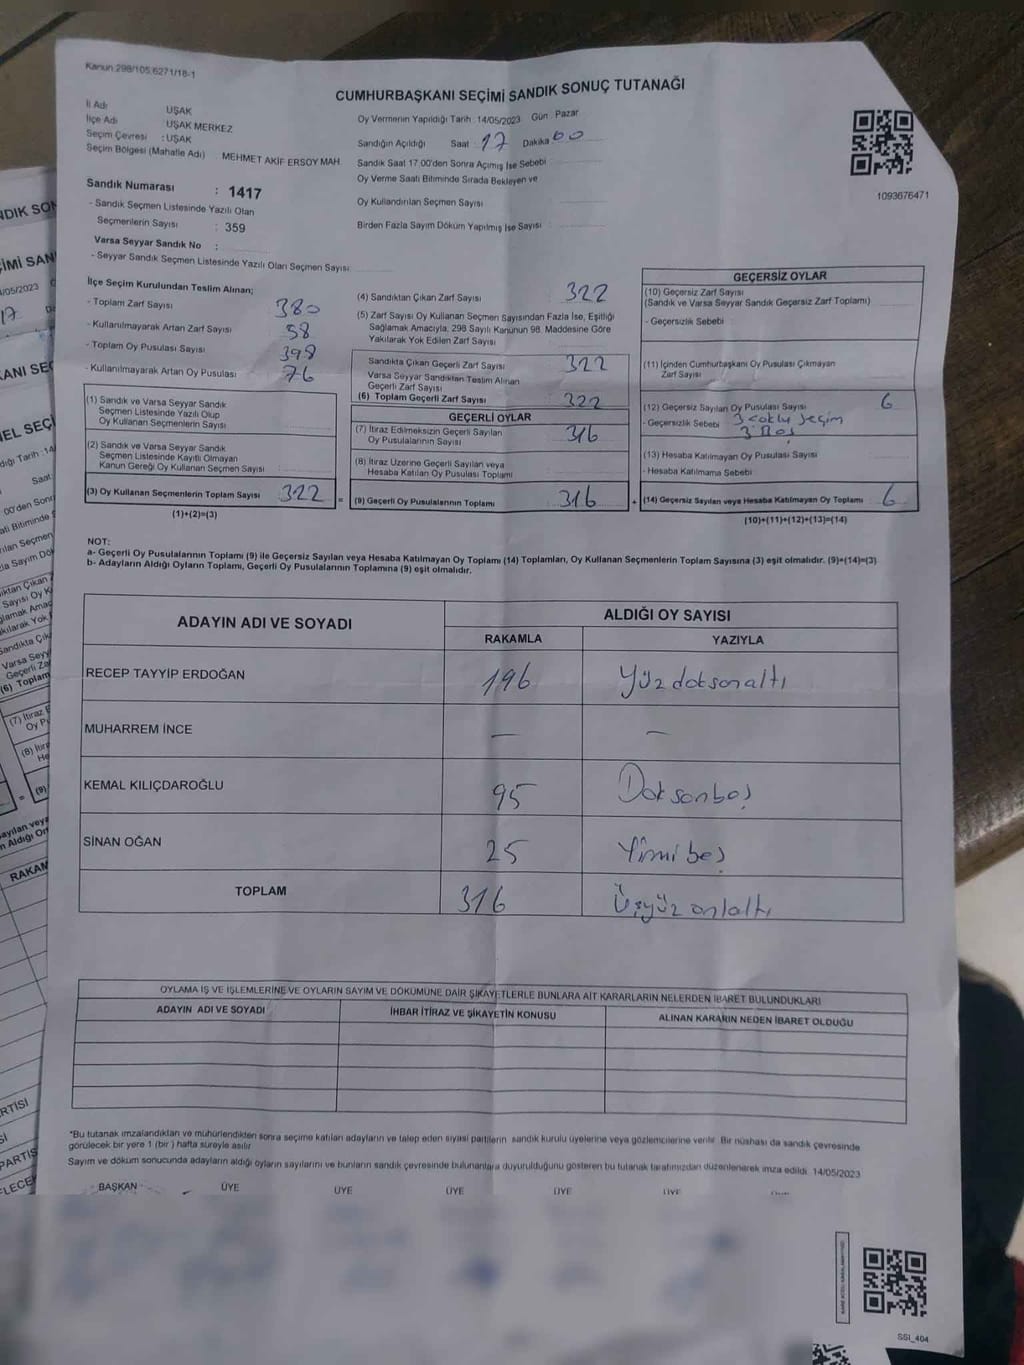 Kanun 298/105,6271/18-1
CUMHURBAŞKANI SEÇİMİ SANDIK SONUÇ TUTANAĞI
İl Adı UŞAK
İlçe Adı UŞAK MERKEZ
Seçim Çevresi : UŞAK
Seçim Bölgesi (Mahalle Adı) : MEHMET AKİF ERSOY MAH.
Sandık Numarası : 1417
- Sandık Seçmen Listesinde Yazılı Olan
Seçmenlerin Sayısı : 359
Varsa Seyyar Sandık No :
- Seyyar Sandık Seçmen Listesinde Yazılı Olan Seçmen Sayısı
Oy Vermenin Yapıldığı Tarih : 14/05/2023 Gün : Pazar
Sandığın Açıldığı Saat : 17 Dakika 00
Sandık Saat 17.00'den Sonra Açımış İse Sebebi
Oy Verme Saati Bitiminde Sırada Bekleyen ve
Oy Kullandırılan Seçmen Sayısı
Birden Fazla Sayım Döküm Yapılmış İse Sayısı
1093676471
İlçe Seçim Kurulundan Teslim Alınan;
- Toplam Zarf Sayısı 380
- Kullanılmayarak Artan Zarf Sayısı 58
- Toplam Oy Pusulası Sayısı 398
- Kullanılmayarak Artan Oy Pusulası 76
(1) Sandık ve Varsa Seyyar Sandık
Seçmen Listesinde Yazılı Olup
Oy Kullanan Seçmenlerin Sayısı
(2) Sandık ve Varsa Seyyar Sandık
Seçmen Listesinde Kayıtlı Olmayan
Kanun Gereği Oy Kullanan Seçmen Sayısı
(3) Oy Kullanan Seçmenlerin Toplam Sayısı 322
(1)+(2)=(3)
(4) Sandıktan Çıkan Zarf Sayısı 322
(5) Zarf Sayısı Oy Kullanan Seçmen Sayısından Fazla İse, Eşitliği
Sağlamak Amacıyla, 298 Sayılı Kanunun 98. Maddesine Göre
Yakılarak Yok Edilen Zarf Sayısı
Sandıkta Çıkan Geçerli Zarf Sayısı 322
Varsa Seyyar Sandıktan Teslim Alınan
Geçerli Zarf Sayısı
(6) Toplam Geçerli Zarf Sayısı 322
GEÇERLİ OYLAR
(7) İtiraz Edilmeksizin Geçerli Sayılan
Oy Pusulalarının Sayısı 316
(8) İtiraz Üzerine Geçerli Sayılan veya
Hesaba Katılan Oy Pusulası Toplamı
= (9) Geçerli Oy Pusulalarının Toplamı 316
GEÇERSİZ OYLAR
(10) Geçersiz Zarf Sayısı
(Sandık ve Varsa Seyyar Sandık Geçersiz Zarf Toplamı)
- Geçersizlik Sebebi
(11) İçinden Cumhurbaşkanı Oy Pusulası Çıkmayan
Zarf Sayısı
(12) Geçersiz Sayılan Oy Pusulası Sayısı 6
- Geçersizlik Sebebi 3 çoklu seçim
3 Boş
(13) Hesaba Katılmayan Oy Pusulası Sayısı
- Hesaba Katılmama Sebebi
+ (14) Geçersiz Sayılan veya Hesaba Katılmayan Oy Toplamı 6
(10)+(11)+(12)+(13)=(14)
NOT:
a- Geçerli Oy Pusulalarının Toplamı (9) ile Geçersiz Sayılan veya Hesaba Katılmayan Oy Toplamı (14) Toplamları, Oy Kullanan Seçmenlerin Toplam Sayısına (3) eşit olmalıdır. (9)+(14)=(3)
b- Adayların Aldığı Oyların Toplamı, Geçerli Oy Pusulalarının Toplamına (9) eşit olmalıdır.
ADAYIN ADI VE SOYADI ALDIĞI OY SAYISI
RAKAMLA YAZIYLA
RECEP TAYYİP ERDOĞAN 196 Yüz doksanaltı
MUHARREM İNCE — —
KEMAL KILIÇDAROĞLU 95 Doksanbeş
SİNAN OĞAN 25 Yirmi beş
TOPLAM 316 Üçyüz onaltı
OYLAMA İŞ VE İŞLEMLERİNE VE OYLARIN SAYIM VE DÖKÜMÜNE DAİR ŞİKAYETLERLE BUNLARA AİT KARARLARIN NELERDEN İBARET BULUNDUKLARI
ADAYIN ADI VE SOYADI İHBAR İTİRAZ VE ŞİKAYETİN KONUSU ALINAN KARARIN NEDEN İBARET OLDUĞU
*Bu tutanak imzalandıktan ve mühürlendikten sonra seçime katılan adayların ve talep eden siyasi partilerin sandık kurulu üyelerine veya gözlemcilerine verilir. Bir nüshası da sandık çevresinde
görülecek bir yere 1 (bir) hafta süreyle asılır
Sayım ve döküm sonucunda adayların aldığı oyların sayılarını ve bunların sandık çevresinde bulunanlara duyurulduğunu gösteren bu tutanak tarafımızdan düzenlenerek imza edildi. 14/05/2023
BAŞKAN ÜYE ÜYE ÜYE ÜYE ÜYE
SSI_404